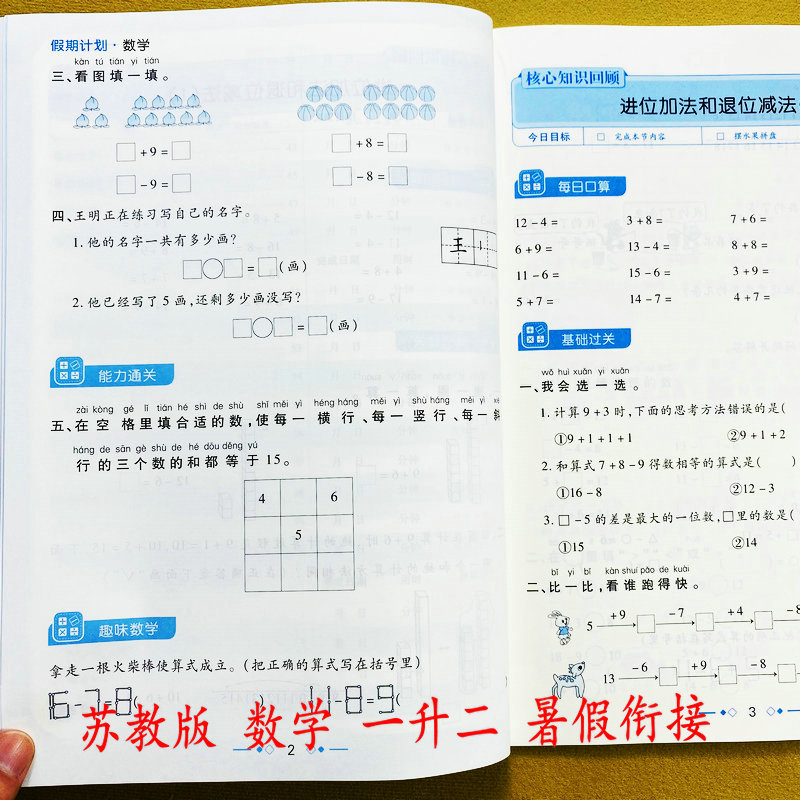 假期计划·数学
kàn tú tián yi tián
三、看图填一填。
□+9=□
□+8=□
□-9=□
□-8=□
四、王明正在练习写自己的名字。
1.他的名字一共有多少画?
王
□○□=□(画)
2.他已经写了5画,还剩多少画没写?
□○□=□(画)
能力通关
zài kòng gé lǐ tián hé shì de shù shǐ měi yì háng měi yì shù háng měi yì
五、在空格里填合适的数,使每一横行、每一竖行、每一斜
háng de sān gè shù de hé dōu děng yú
行的三个数的和都等于15。
4 6
5
趣味数学
拿走一根火柴棒使算式成立。(把正确的算式写在括号里)
16-7=8( ) 11-8=9(
2
核心知识回顾
进位加法和退位减法
今日目标 □ 完成本节内容 □ 摆水果拼盘
每日口算
12-4= 3+8= 7+6=
6+9= 13-4= 8+8=
11-6= 15-6= 3+9=
5+7= 14-7= 4+7=
基础过关
wǒ huì xuǎn yi xuǎn
一、我会选一选。
1.计算9+3时,下面的思考方法错误的是(
①9+1+1+1 ②9+1+2
2.和算式7+8-9得数相等的算式是( )
①16-8 ②12-3
3.□-5的差是最大的一位数,□里的数是(
①15 ②14
bǐ yi bǐ kàn shuí pǎo de kuài
二、比一比,看谁跑得快。
5 +9 □ -7 □ +4 □ -8
13 -6 □ +9 □ -8 □
3
苏教版 数学 一升二 暑假衔接